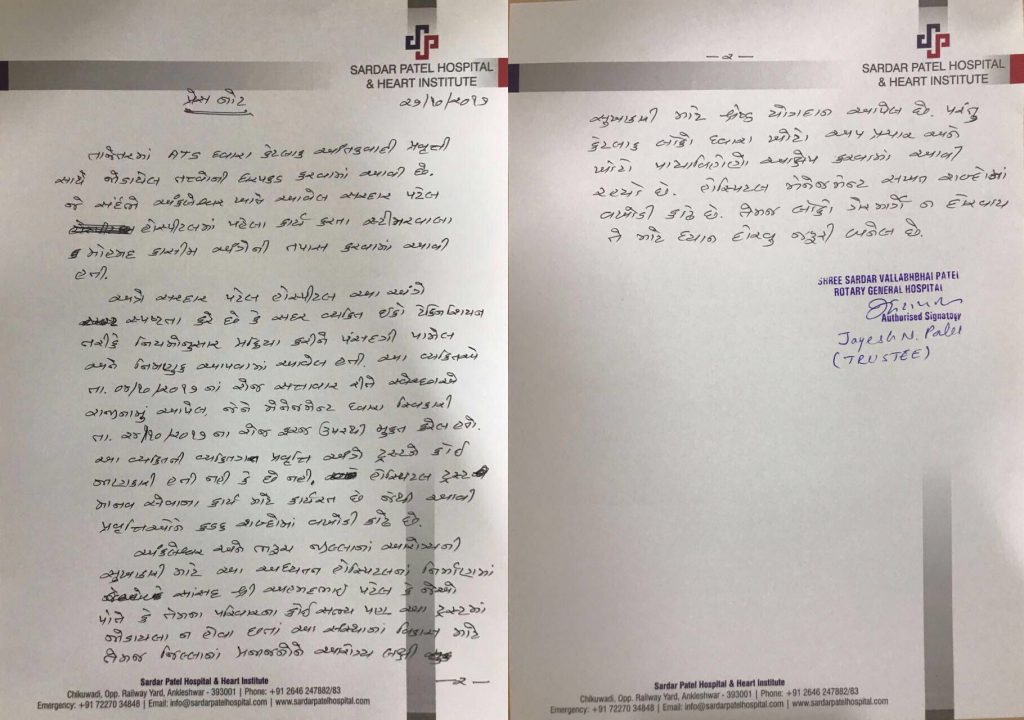 SARDAR PATEL HOSPITAL
& HEART INSTITUTE
પ્રેસ નોટ
૨૭/૧૦/૨૦૧૭
તાજેતરમાં ATS દ્વારા કેટલાક આતંકવાદી પ્રવૃત્તી
સાથે જોડાયેલ તત્વોની ધરપકડ કરવામાં આવી છે.
જે સંદર્ભે અંકલેશ્વર ખાતે આવેલ સરદાર પટેલ
હોસ્પીટલમાં પહેલા કાર્ય કરતા સ્ટીમરવાલા
મોહમદ કાસીમ અંગેની તપાસ કરવામાં આવી
હતી.
અત્રે સરદાર પટેલ હોસ્પીટલ આ અંગે
સ્પષ્ટતા કરે છે કે સદર વ્યક્તિ ઈકો ટેકનિશિયન
તરીકે નિયમોનુસાર પ્રક્રિયા કરીને પસંદગી પામેલ
અને નિમણુક આપવામાં આવેલ હતી. આ વ્યક્તિએ
તા. ૦૪/૧૦/૨૦૧૭ નાં રોજ સત્તાવાર રીતે સ્વેચ્છાએ
રાજીનામું આપેલ, જેને મેનેજમેન્ટ દ્વારા સ્વિકારી
તા. ૨૪/૧૦/૨૦૧૭ ના રોજ ફરજ ઉપરથી મુક્ત કરેલ હતો.
આ વ્યક્તિની વ્યક્તિગત પ્રવૃત્તિ અંગે ટ્રસ્ટને કોઈ
જાણકારી હતી નહી કે છે નહી. હોસ્પિટલ ટ્રસ્ટ
માનવ સેવાના કાર્ય માટે કાર્યરત છે જેથી આવી
પ્રવૃત્તિઓને કડક શબ્દોમાં વખોડી કાઢે છે.
અંકલેશ્વર અને ભરૂચ જીલ્લાનાં આરોગ્યની
સુખાકારી માટે આ અદ્યતન હોસ્પિટલનાં નિર્માણમાં
સાંસદ શ્રી અહમદભાઈ પટેલ કે જેઓ
પોતે કે તેમના પરિવારના કોઈ સભ્ય પણ આ ટ્રસ્ટમાં
જોડાયેલા ન હોવા છતાં આ સંસ્થાનાં વિકાસ માટે
તેમજ જિલ્લાનાં પ્રજાજનોને આરોગ્ય લક્ષી
—૨—
Sardar Patel Hospital & Heart Institute
Chikuwadi, Opp. Railway Yard, Ankleshwar - 393001 | Phone: +91 2646 247882/83
Emergency: +91 72270 34848 | Email: info@sardarpatelhospital.com | www.sardarpatelhospital.com
—૨—
SARDAR PATEL HOSPITAL
& HEART INSTITUTE
સુખાકારી માટે શ્રેષ્ઠ યોગદાન આપેલ છે. પરંતુ
કેટલાક લોકો દ્વારા ખોટો અપપ્રચાર અને
ખોટો પાયાવિહોણો આક્ષેપ કરવામાં આવી
રહ્યો છે. હોસ્પિટલ મેનેજમેન્ટ સખત શબ્દોમાં
વખોડી કાઢે છે. તેમજ લોકો ગેરમાર્ગે ન દોરવાય
તે માટે ધ્યાન દોરવુ જરૂરી બનેલ છે.
SHREE SARDAR VALLABHBHAI PATEL
ROTARY GENERAL HOSPITAL
Authorised Signatory
Jayesh N. Patel
(TRUSTEE)
Sardar Patel Hospital & Heart Institute
Chikuwadi, Opp. Railway Yard, Ankleshwar - 393001 | Phone: +91 2646 247882/83
Emergency: +91 72270 34848 | Email: info@sardarpatelhospital.com | www.sardarpatelhospital.com